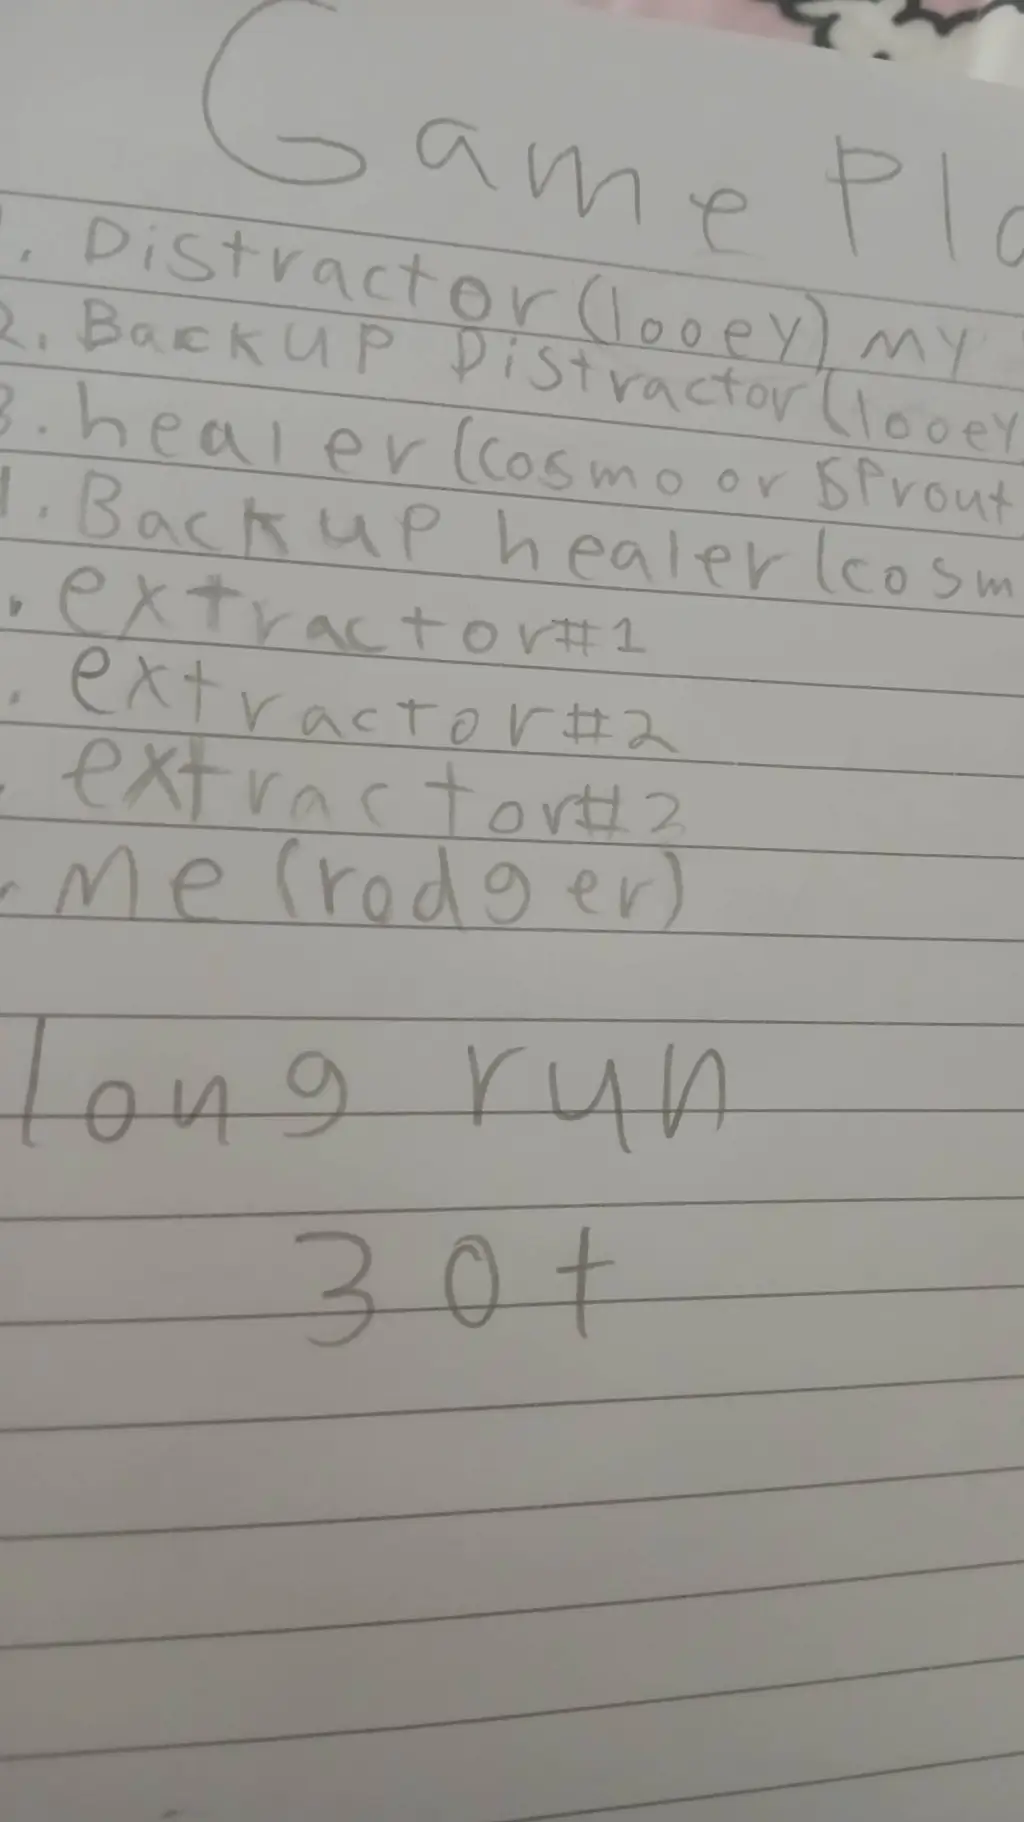 Game Pla
. Distractor (looey) my
2. Backup Distractor (looey
3. healer (cosmo or sprout
. Backup healer (cosm
. extractor #1
. extractor #2
. extractor #3
. Me (rodger)
long run
30+